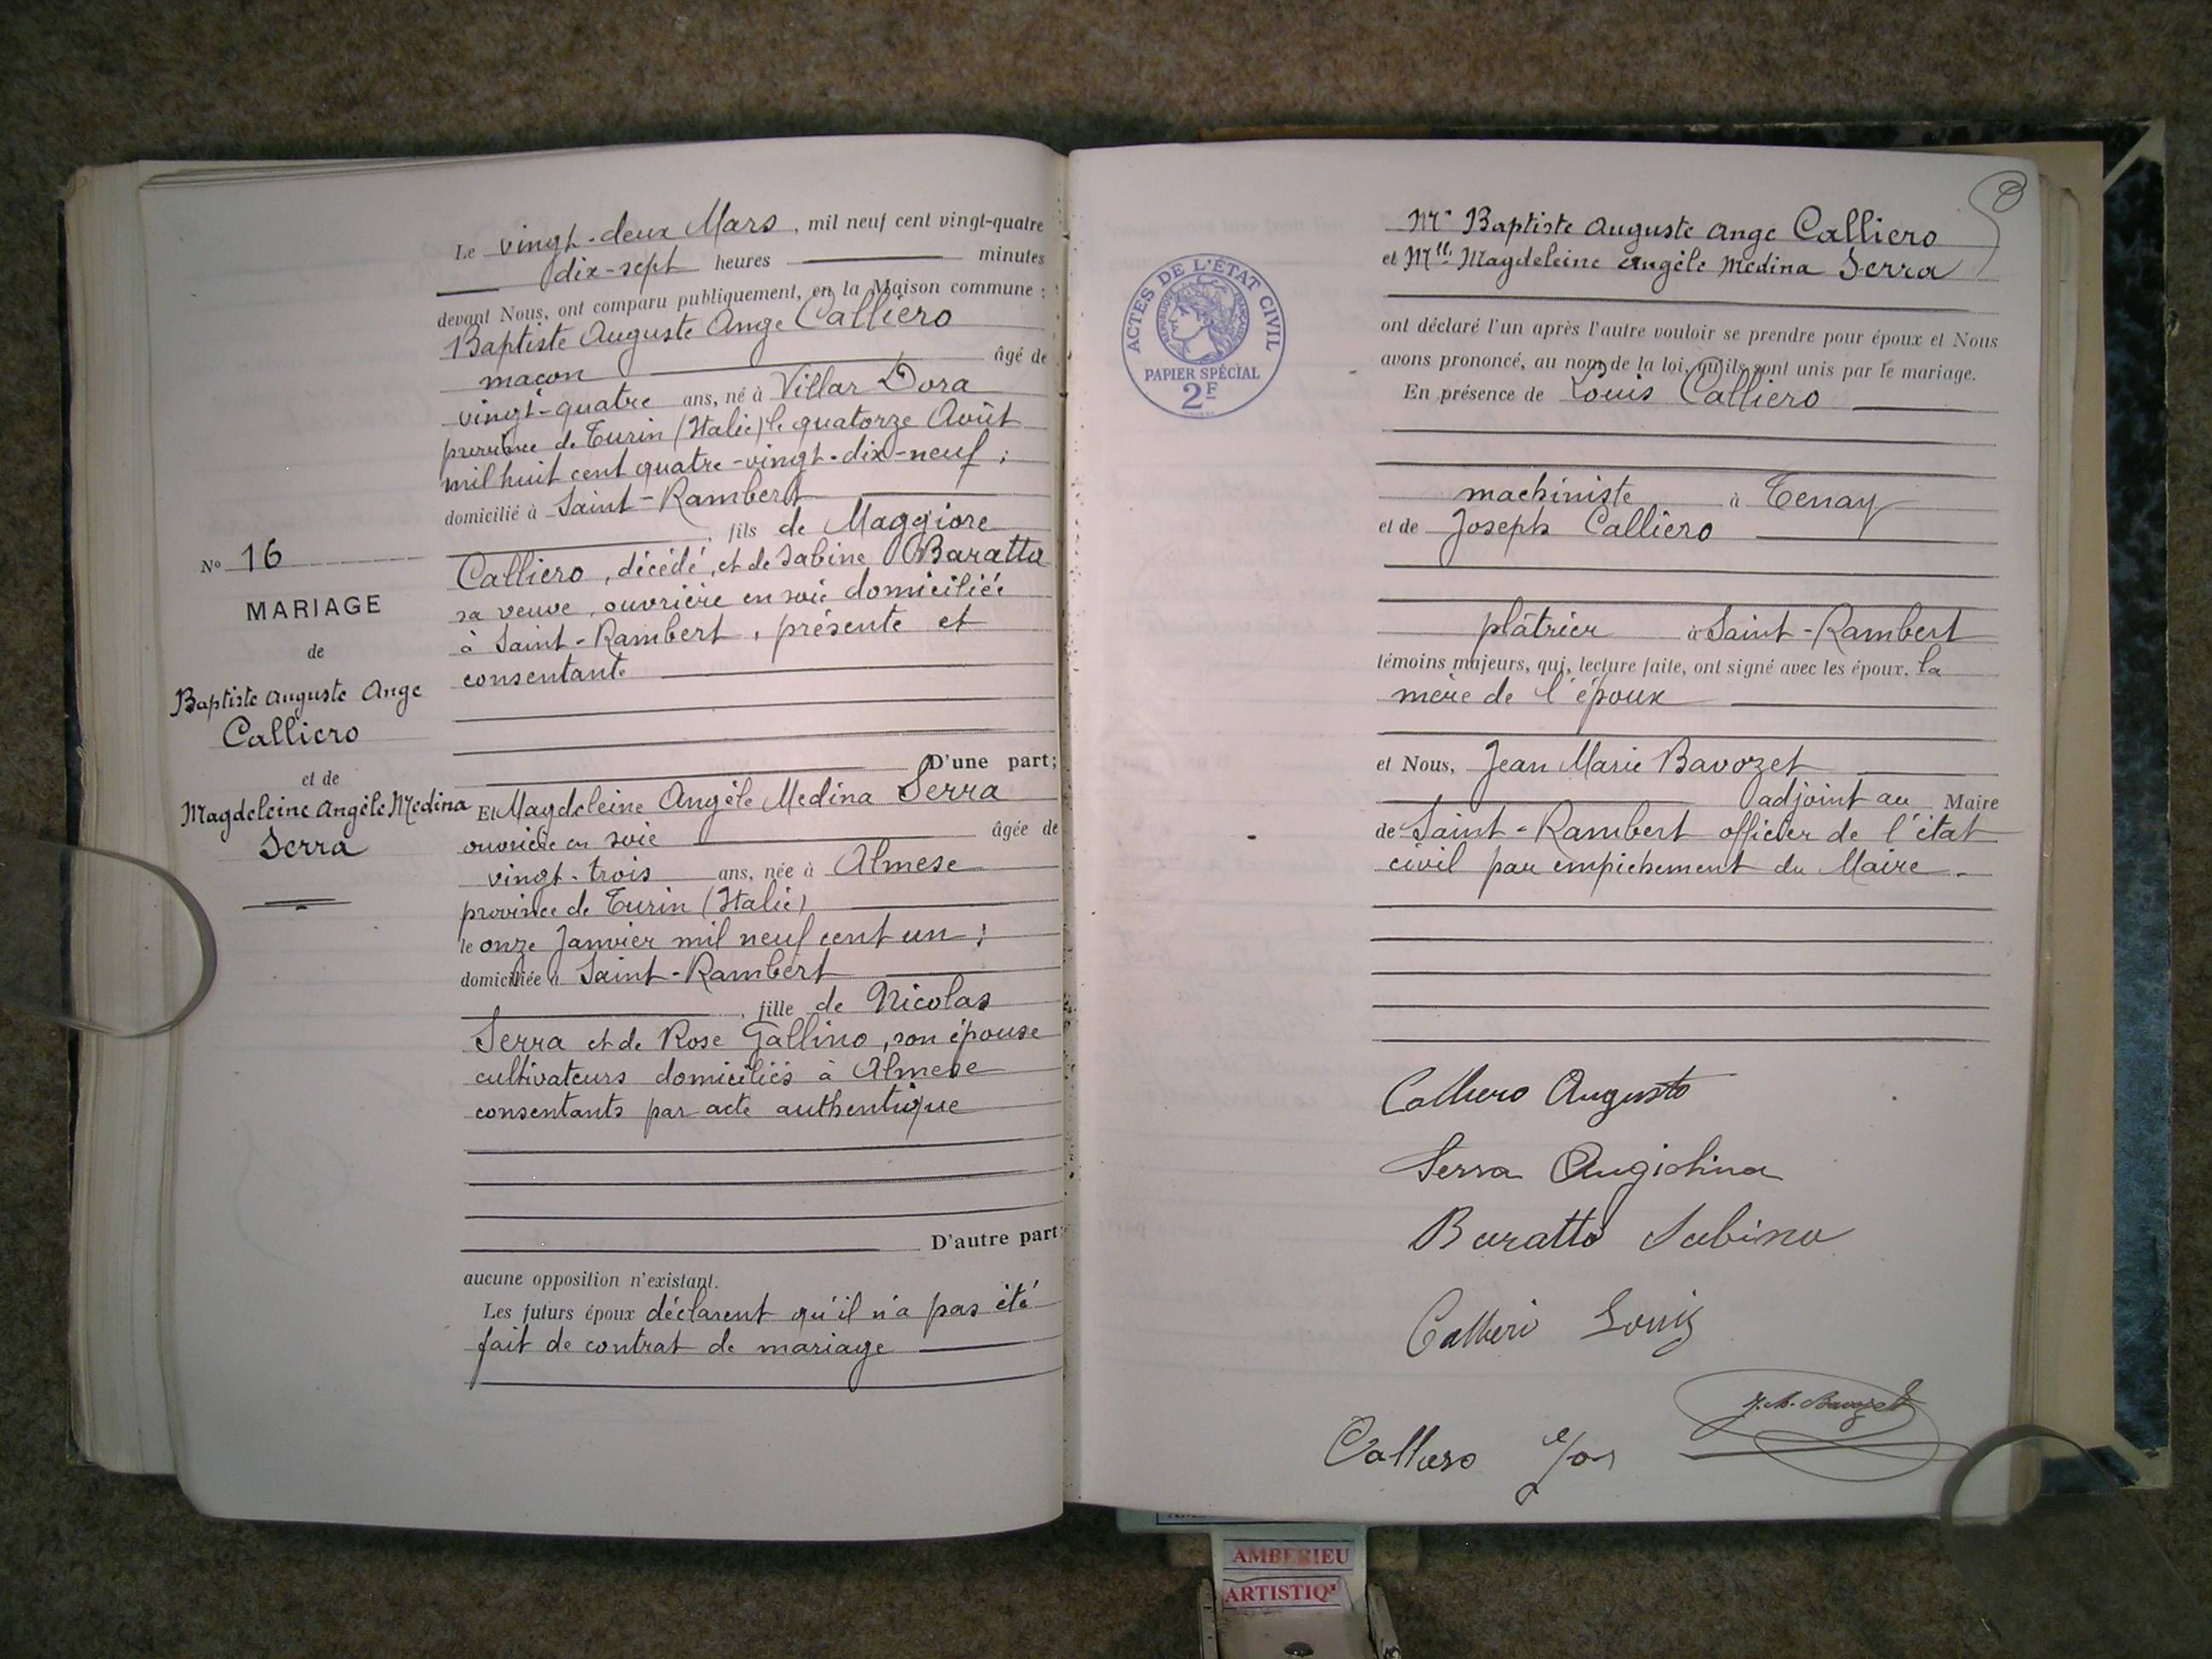 Le vingt-deux Mars, mil neuf cent vingt-quatre
dix-sept heures minutes
devant Nous, ont comparu publiquement, en la Maison commune :
Baptiste Auguste Ange Calliero
maçon âgé de
vingt-quatre ans, né à Villar Dora
province de Turin (Italie) le quatorze Août
mil huit cent quatre-vingt-dix-neuf ;
domicilié à Saint-Rambert
, fils de Maggiore
Calliero, décédé, et de Sabine Baratta
sa veuve, ouvrière en soie domiciliée
à Saint-Rambert, présente et
consentante
D'une part;
Et Magdeleine Angèle Medina Serra
ouvrière en soie âgée de
vingt-trois ans, née à Almese
province de Turin (Italie)
le onze Janvier mil neuf cent un ;
domiciliée à Saint-Rambert
, fille de Nicolas
Serra et de Rose Gallino, son épouse
cultivateurs domiciliés à Almese
consentants par acte authentique
D'autre part;
aucune opposition n'existant.
Les futurs époux déclarent qu'il n'a pas été
fait de contrat de mariage
No 16
MARIAGE
de
Baptiste Auguste Ange
Calliero
et de
Magdeleine Angèle Medina
Serra
ACTES DE L'ÉTAT CIVIL
RÉPUBLIQUE FRANÇAISE
PAPIER SPÉCIAL
2F
Mr Baptiste Auguste Ange Calliero
et Mlle Magdeleine Angèle Medina Serra
ont déclaré l'un après l'autre vouloir se prendre pour époux et Nous
avons prononcé, au nom de la loi, qu'ils sont unis par le mariage.
En présence de Louis Calliero
machiniste à Tenay
et de Joseph Calliero
plâtrier à Saint-Rambert
témoins majeurs, qui, lecture faite, ont signé avec les époux, la
mère de l'époux
et Nous, Jean Marie Bavozet
adjoint au Maire
de Saint-Rambert officier de l'état
civil par empêchement du Maire.
Calliero Augusto
Serra Angiolina
Baratta Sabina
Callieri Louis
J. M. Bavozet
Calliero Jos
AMBERIEU
ARTISTIQ